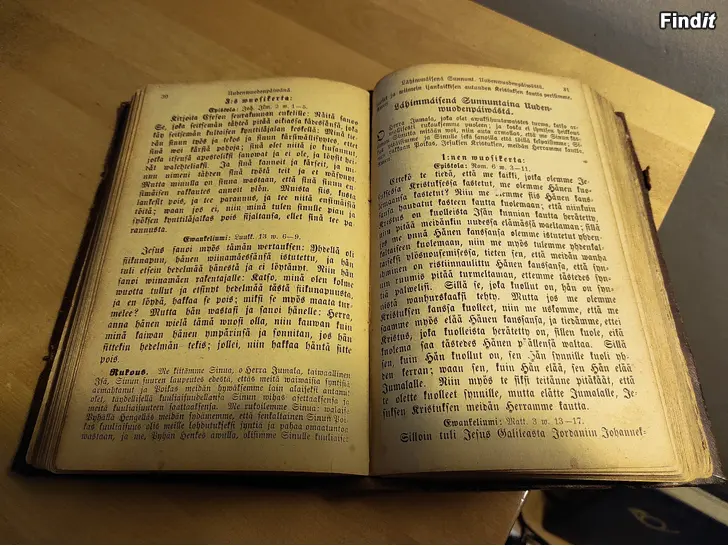 Findit
30 Uudenwuodenpäiwänä.
3:s wuosikerta:
Epistola: Joh. Ilm. 2 w. 1—5.
Kirjoita Efeson seurakunnan enkelille: Näitä sanoo
Se, joka seitsemän tähteä pitää oikiassa kädessänsä, joka
käy seitsemän kultaisen kynttiläjalan keskellä: Minä tie-
dän sinun työs ja tekos ja sinun kärsiwällisyytes, ettes
sinä woi kärsiä pahoja, ja olet niitä
jotka itsensä apostoleiksi sanowat ja ei ole, ja löysit hei-
dät walehteliaksi. Ja sinä kannoit ja kärseit, ja mi-
nun nimeni tähden sinä työtä teit ja et wäsynyt.
Mutta minulla on sinua wastaan, että sinä sinun en-
simäisen rakkautes annoit ylön. Muista siis, kusta
lankesit pois, ja tee parannus, ja tee niitä ensimäisiä
töitä; waan jos ei, niin minä tulen sinulle pian ja
syöksen kynttiläjalkas pois sijaltansa, ellet sinä tee pa-
rannusta.
Ewankeliumi: Luuk. 13 w. 6—9.
Jesus sanoi myös tämän wertauksen: Yhdellä oli
fiikunapuu, hänen wiinamäessänsä istutettu, ja hän
tuli etsein hedelmää hänestä ja ei löytänyt. Niin hän
sanoi wiinamäen rakentajalle: Katso, minä olen kolme
wuotta tullut ja etsinyt hedelmää tästä fiikunapuusta,
ja en löydä, hakkaa se pois; miksi se myös maata tur-
melee? Mutta hän wastasi ja sanoi hänelle: Herra,
anna hänen wielä tämä wuosi olla, niin kauwan kuin
minä kaiwan hänen ympärinsä ja sonnitan, jos hän
sittekin hedelmän tekis; jollei, niin hakkaa häntä sitte
pois.
Rukous. Me kiitämme Sinua, o Herra Jumala, taiwaallinen
Isä, Sinun suuren laupeutes edestä, ettäs meitä waiwaisia syntisiä
armahtanut ja Poikas meidän hywäksemme lain alaiseksi antanut
olet, täydellisellä kuuliaisuudellansa Sinun wihas asettaaksensa ja
meitä kuuliaisuuteen saattaaksensa. Me rukoilemme Sinua: walaise
Pyhällä Hengelläs meidän sydämemme, että senkaltainen Sinun Poi-
kas kuuliaisuus olis meille lohdutukseksi syntiä ja pahaa omaatuntoa
wastaan, ja me, Pyhän Henkes awulla, olisimme Sinulle kuuliaiset
Lähimmäisenä Sunnunt. Uudenwuodenpäiwästä. 31
Lähimmäisenä Sunnuntaina Uuden-
wuodenpäiwästä.
1:nen wuosikerta:
Epistola: Rom. 6 w. 3—11.
Ettekö te tiedä, että me kaikki, jotka olemme Je-
suksessa Kristuksessa kastetut, me olemme Hänen kuo-
lemaansa kastetut? Niin me olemme Hänen
kanssansa haudatut kasteen kautta kuolemaan, että niinkuin
Kristus on kuolleista Isän kunnian kautta herätetty,
niin pitää meidänkin uudessa elämässä waeltaman; sillä
jos me ynnä Hänen kanssansa olemme istutetut yhden-
kaltaiseen kuolemaan, niin me myös tulemme yhdenkal-
taiseksi ylösnousemisessa, tieten sen, että meidän wanha
ihminen on ristiinnaulittu Hänen kanssansa, että syn-
nin ruumis pitää turmeltaman, ettemme tästedes syn-
tiä palwelisi. Sillä se, joka kuollut on, hän on syn-
nistä wanhurskaaksi tehty. Mutta jos me olemme
Kristuksen kanssa kuolleet, niin me uskomme, että me
saamme myös elää Hänen kanssansa, ja tiedämme, ettei
Kristus, joka kuolleista herätetty on, sillen kuole, eikä
kuolema saa tästedes Hänen päällensä waltaa. Sillä
sen, kuin Hän kuollut on, sen Hän synnille kuoli yh-
den kerran; waan sen, kuin Hän elää, sen Hän elää
Jumalalle. Niin myös te siksi teitänne pitäkäät, että
te olette kuolleet synnille, mutta elätte Jumalalle, Je-
suksen Kristuksen meidän Herramme kautta.
Ewankeliumi: Matt. 3 w. 13—17.
Silloin tuli Jesus Galileasta Jordaniin Johannek-